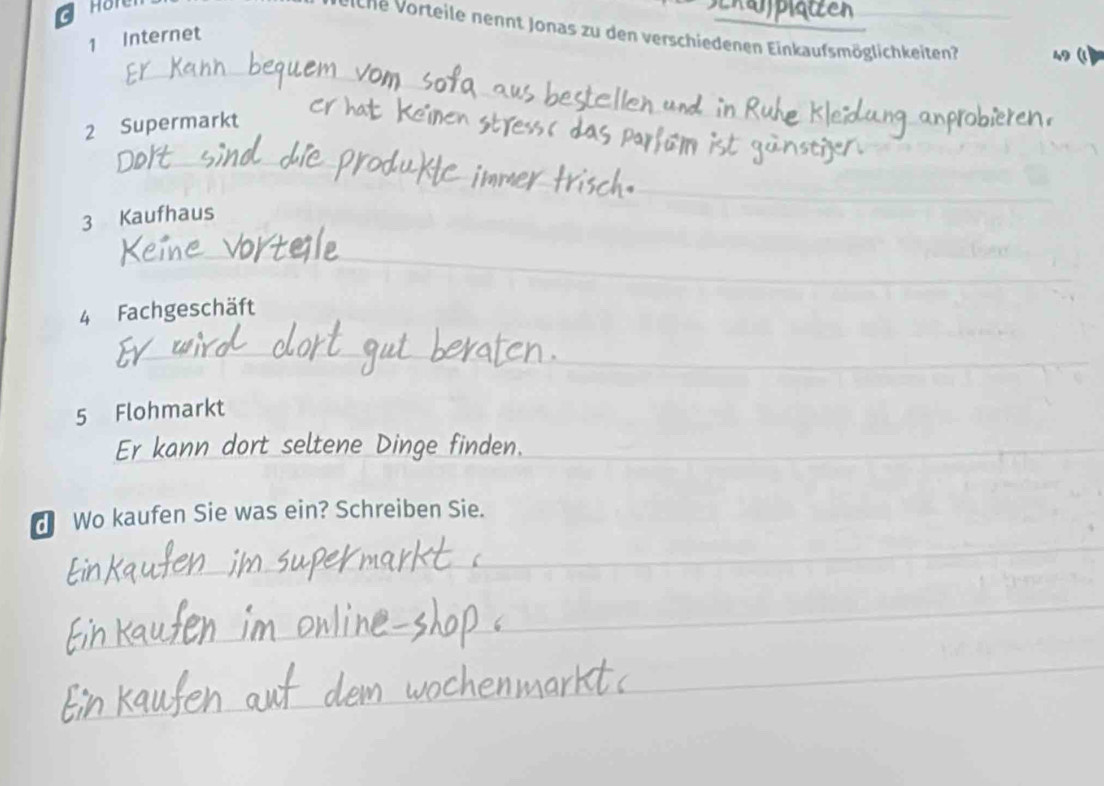 Schallplatten
Vorteile nennt Jonas zu den verschiedenen Einkaufsmöglichkeiten?
1 Internet
49
Er kann bequem vom sofa aus bestellen und in Ruhe Kleidung anprobieren.
er hat Keinen stress. das parfüm ist günstiger.
2 Supermarkt
Dort sind die produkte immer frisch.
3 Kaufhaus
Keine vorteile
4 Fachgeschäft
Er wird dort gut beraten.
5 Flohmarkt
Er kann dort seltene Dinge finden.
d Wo kaufen Sie was ein? Schreiben Sie.
Einkaufen im supermarkt.
Einkaufen im online-shop.
Einkaufen auf dem wochenmarkt.